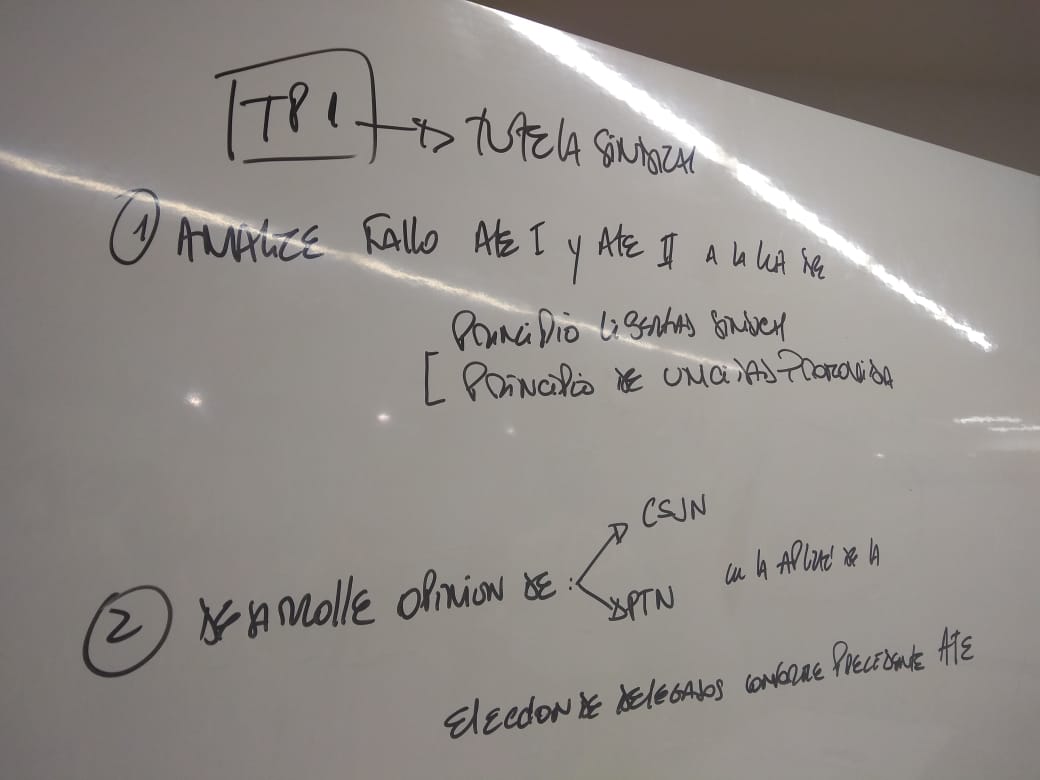 TP 1 → TUTELA SINDICAL
① ANALICE FALLO ATE I y ATE II A LA LUZ DE
PRINCIPIO LIBERTAD SINDICAL
[ PRINCIPIO DE UNICIDAD PROMOVIDA
② DESARROLLE OPINION DE : CSJN
PTN en LA APLICAC DE LA
ELECCION DE DELEGADOS CONFORME PRECEDENTE ATE